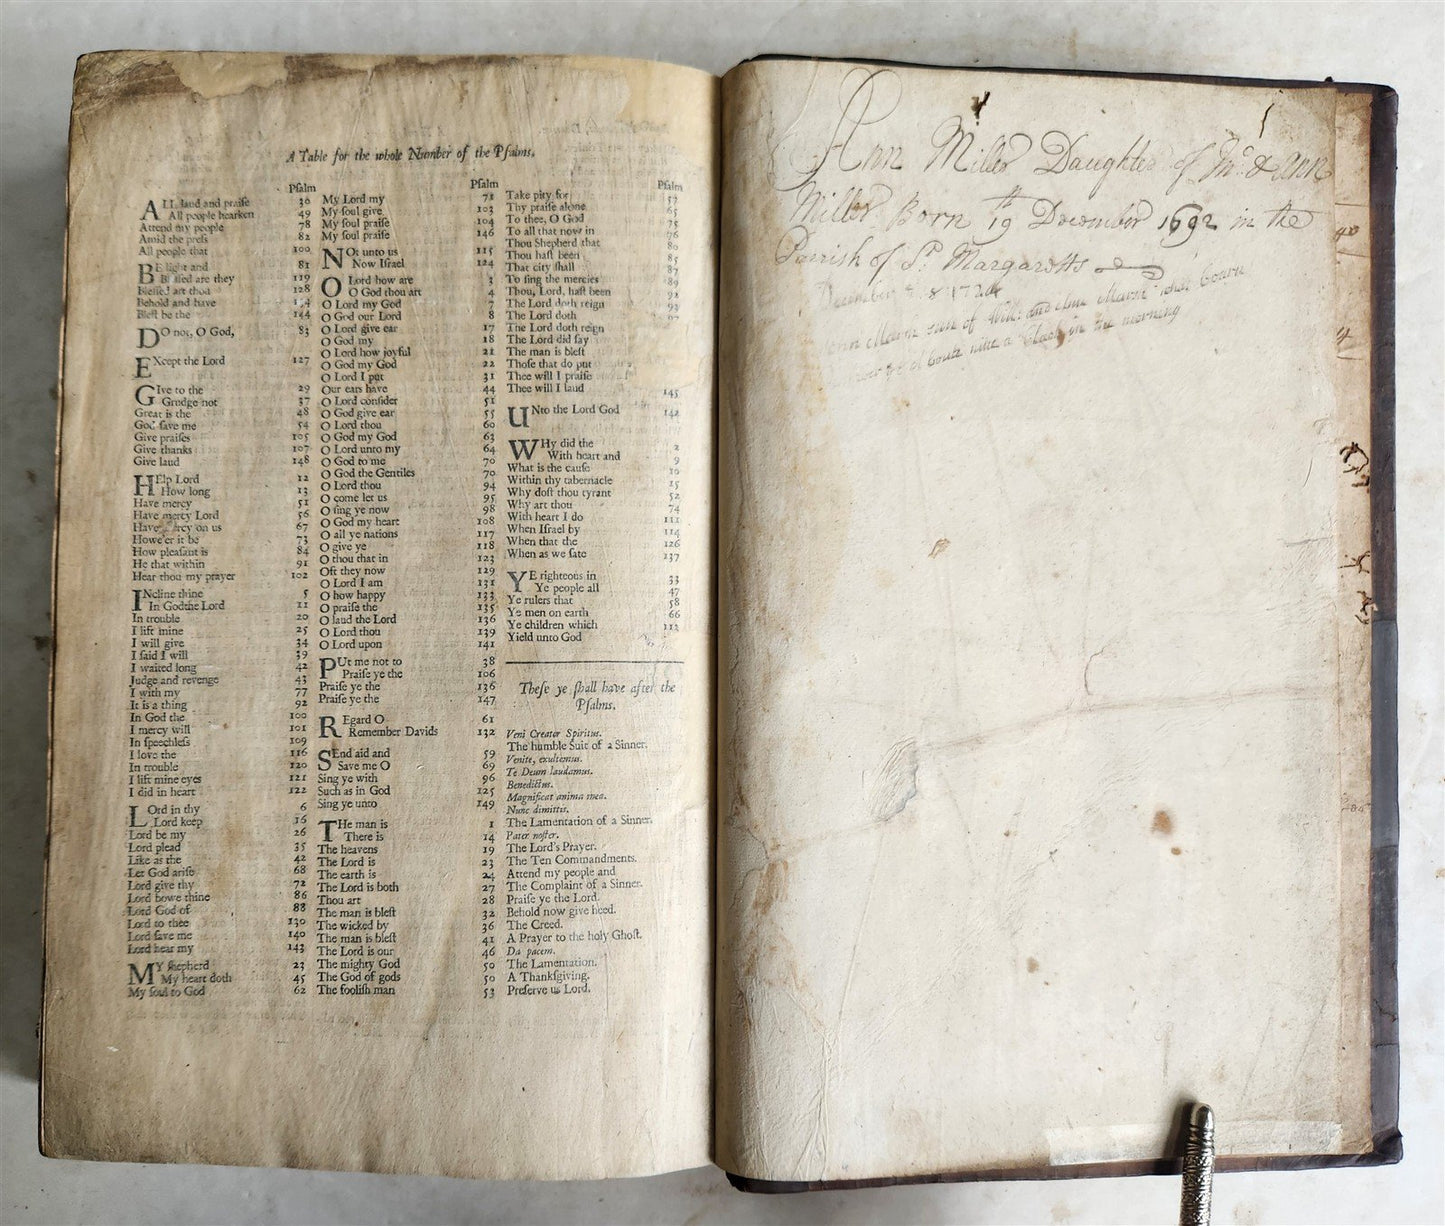 A Table for the whole Number of the Pſalms.
Pſalm
ALL laud and praiſe 30
All people hearken 49
Attend my people 78
Amid the preſs 82
All people that 100
BE light and 81
Bleſſed are they 119
Bleſſed art thou 128
Behold and have 134
Bleſt be the 144
DO not, O God, 83
EXcept the Lord 127
GIve to the 29
Grudge not 37
Great is the 48
God ſave me 54
Give praiſes 105
Give thanks 107
Give laud 148
HElp Lord 12
How long 13
Have mercy 51
Have mercy Lord 56
Have mercy on us 67
Howe'er it be 73
How pleaſant is 84
He that within 91
Hear thou my prayer 102
INcline thine 5
In God the Lord 11
In trouble 20
I lift mine 25
I will give 34
I ſaid I will 39
I waited long 42
Judge and revenge 43
I with my 77
It is a thing 92
In God the 100
I mercy will 101
In ſpeechleſs 109
I love the 116
In trouble 120
I lift mine eyes 121
I did in heart 122
LOrd in thy 6
Lord keep 16
Lord be my 26
Lord plead 35
Like as the 42
Let God ariſe 68
Lord give thy 72
Lord bowe thine 86
Lord God of 88
Lord to thee 130
Lord ſave me 140
Lord hear my 143
MY ſhepherd 23
My heart doth 45
My ſoul to God 62
Pſalm
My Lord my 71
My ſoul give 103
My ſoul praiſe 104
My ſoul praiſe 146
NOt unto us 115
Now Iſrael 124
O Lord how are 3
O God thou art 4
O Lord my God 7
O God our Lord 8
O Lord give ear 17
O God my 18
O Lord how joyful 21
O God my God 22
O Lord I put 31
Our ears have 44
O Lord conſider 51
O God give ear 55
O Lord thou 60
O God my God 63
O Lord unto my 64
O God to me 70
O God the Gentiles 70
O Lord thou 94
O come let us 95
O ſing ye now 98
O God my heart 108
O all ye nations 117
O give ye 118
O thou that in 123
Oft they now 129
O Lord I am 131
O how happy 133
O praiſe the 135
O laud the Lord 136
O Lord thou 139
O Lord upon 141
PUt me not to 38
Praiſe ye the 106
Praiſe ye the 136
Praiſe ye the 147
REgard O 61
Remember Davids 132
SEnd aid and 59
Save me O 69
Sing ye with 96
Such as in God 125
Sing ye unto 149
THe man is 1
There is 14
The heavens 19
The Lord is 23
The earth is 24
The Lord is both 27
Thou art 28
The man is bleſt 32
The wicked by 36
The man is bleſt 41
The Lord is our 46
The mighty God 50
The God of gods 50
The fooliſh man 53
Pſalm
Take pity for 57
Thy praiſe alone 65
To thee, O God 75
To all that now in 76
Thou Shepherd that 80
Thou haſt been 85
That city ſhall 87
To ſing the mercies 89
Thou, Lord, haſt been 92
The Lord doth reign 93
The Lord doth 97
The Lord doth reign
The Lord did ſay
The man is bleſt
Thoſe that do put
Thee will I praiſe
Thee will I laud 145
UNto the Lord God 142
WHy did the 2
With heart and 9
What is the cauſe 10
Within thy tabernacle 15
Why doſt thou tyrant 52
Why art thou 74
With heart I do 111
When Iſrael by 114
When that the 126
When as we ſate 137
YE righteous in 33
Ye people all 47
Ye rulers that 58
Ye men on earth 66
Ye children which 113
Yield unto God
Theſe ye ſhall have after the
Pſalms.
Veni Creator Spiritus.
The humble Suit of a Sinner.
Venite, exultemus.
Te Deum laudamus.
Benedictus.
Magnificat anima mea.
Nunc dimittis.
The Lamentation of a Sinner.
Pater noſter.
The Lord's Prayer.
The Ten Commandments.
Attend my people and
The Complaint of a Sinner.
Praiſe ye the Lord.
Behold now give heed.
The Creed.
A Prayer to the holy Ghoſt.
Da pacem.
The Lamentation.
A Thankſgiving.
Preſerve us Lord.
Ann Miller Daughter of Jno. & Ann
Miller Born ye 19th December 1692 in the
Parrish of St. Margaretts
December 8 1724
son of Will: and was bourn
a Clock in the morning